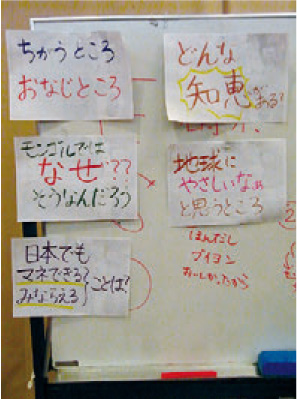 ちがうところ
おなじところ
どんな
知恵がある?
モンゴルでは
なぜ??
そうなんだろう
地球に
やさしいなぁ
と思うところ
日本でも
マネできる?
みならえる
ことは!
ほんだし
ブイヨン